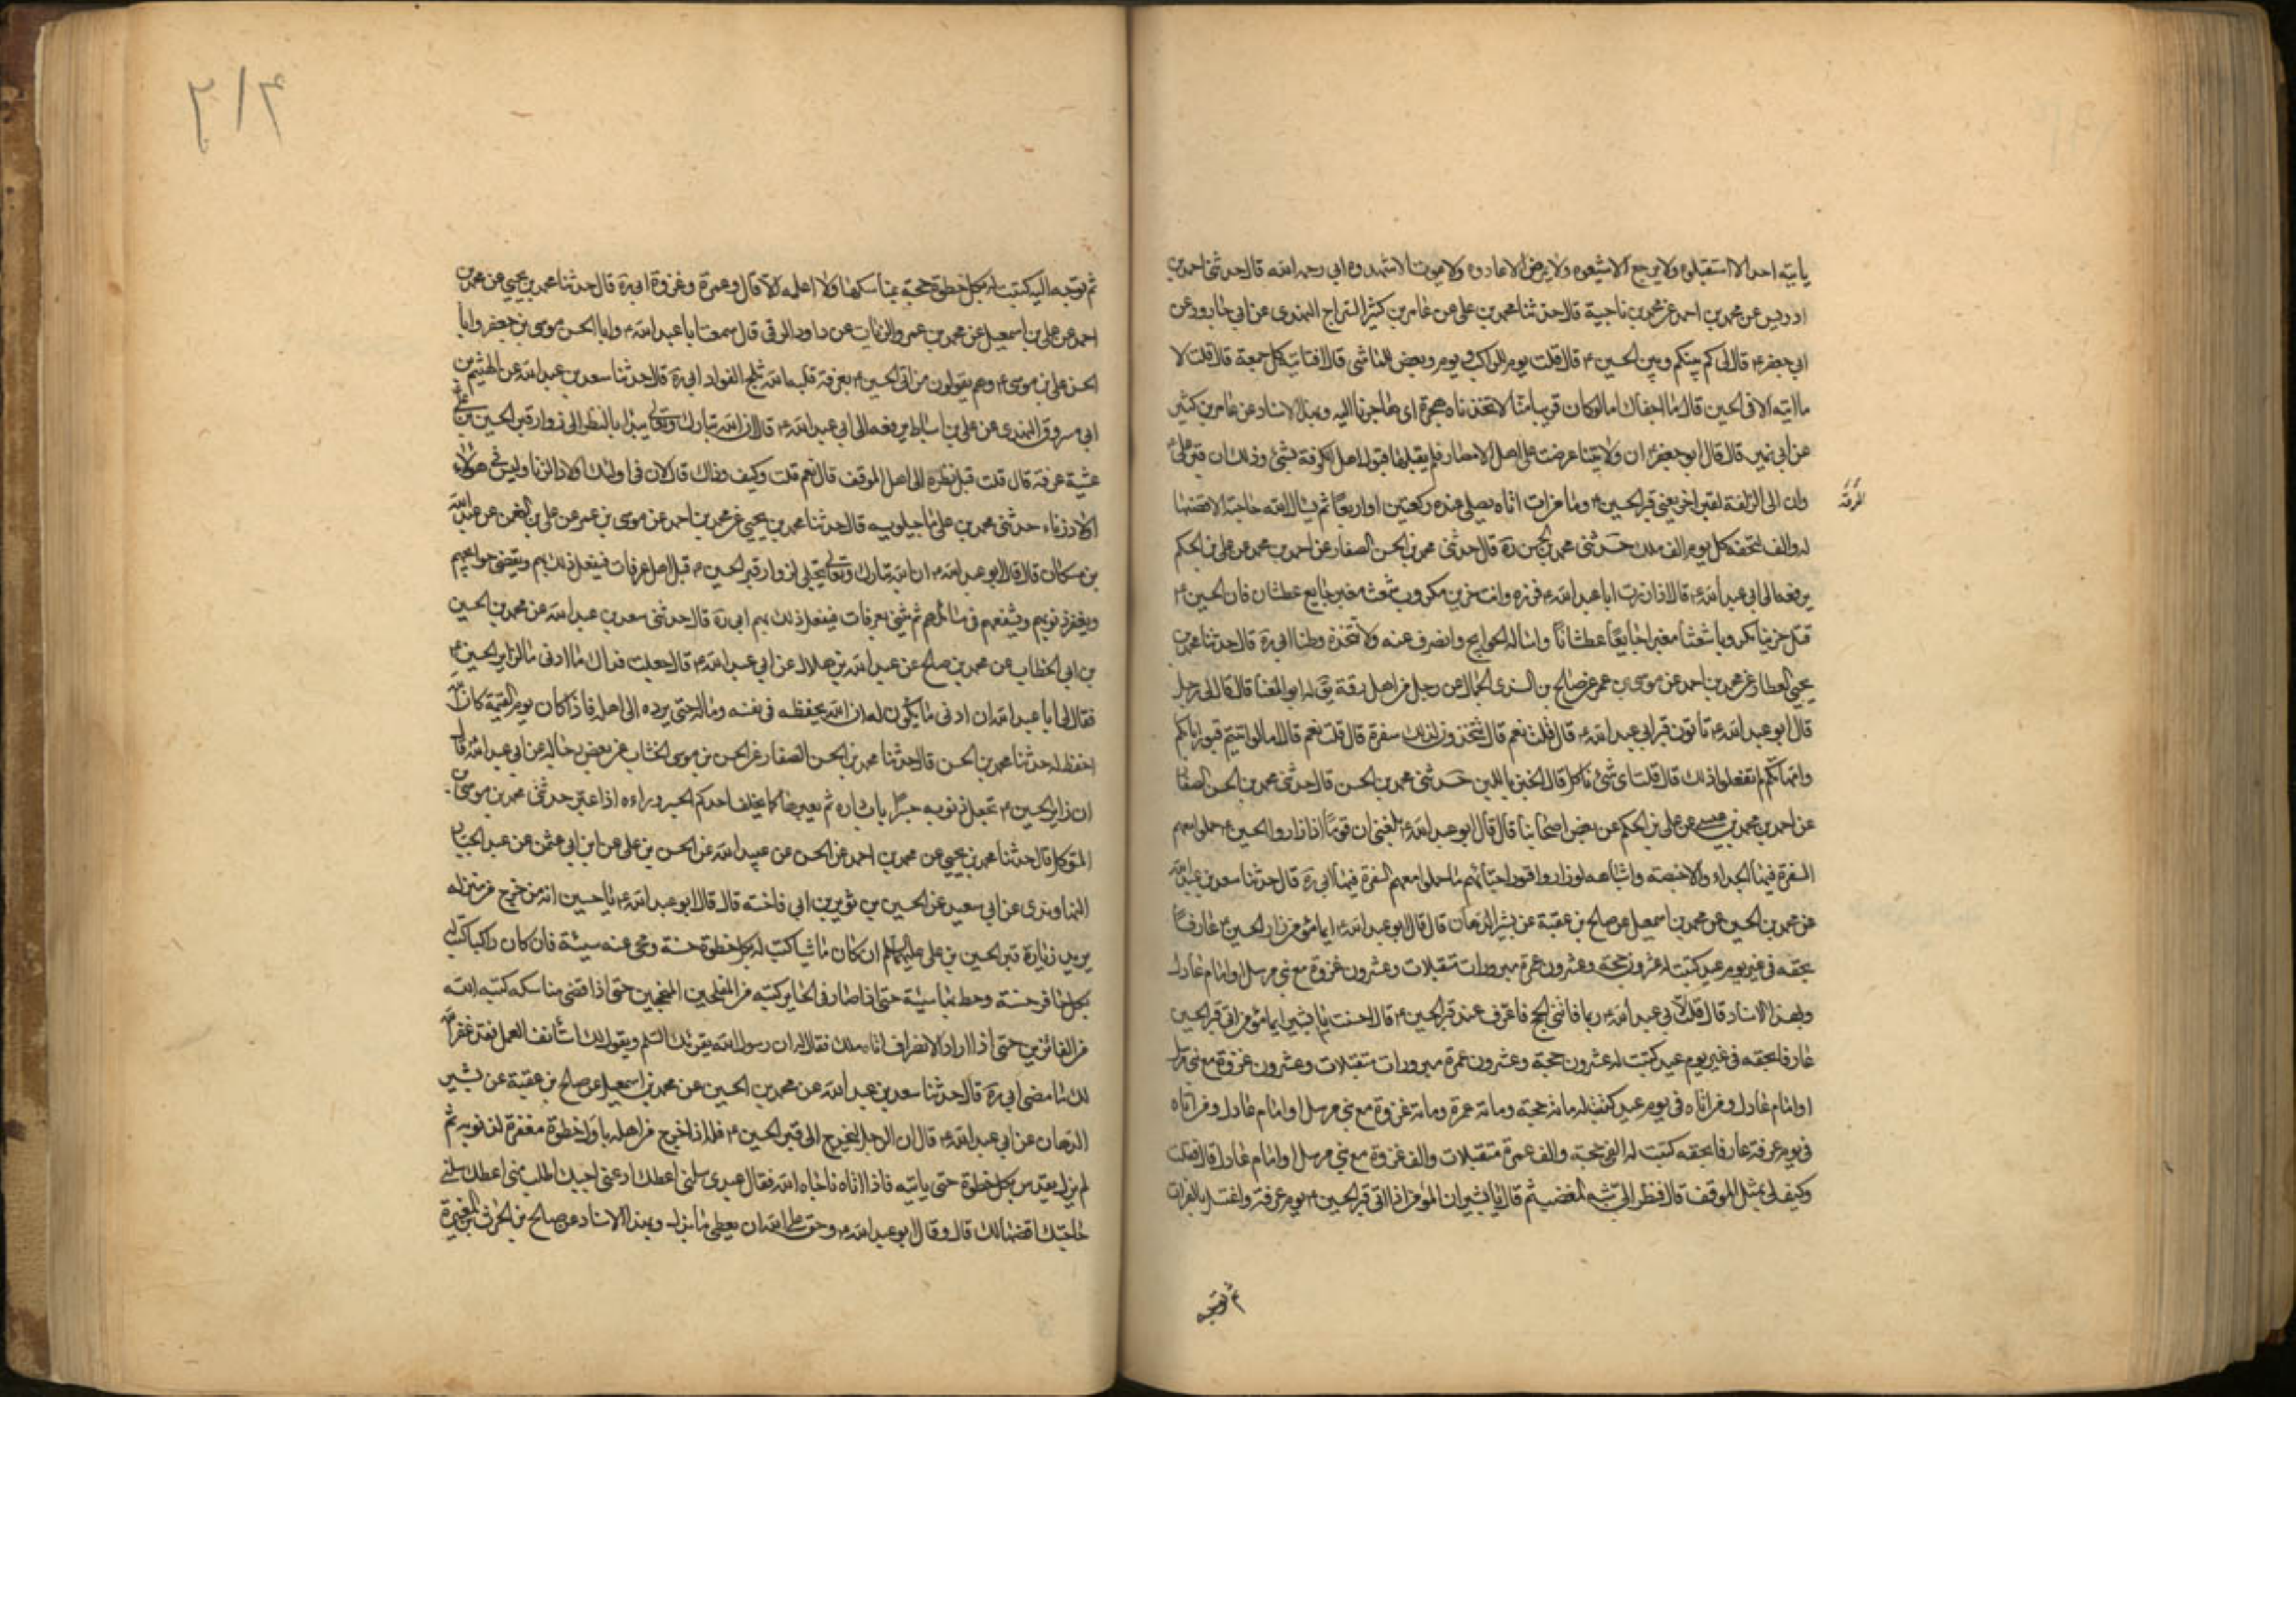 ياتيه احد الا استقبلوه ولا يرجع الا شيعوه ولا يمرض الا عادوه ولا يموت الا شهدوه ابى رحمه الله قال حدثنى احمد بن
ادريس عن محمد بن احمد عن محمد بن ناجية قال حدثنا محمد بن على عن عامر بن كثير السراج النهدى عن ابى جارود عن
ابى جعفر ع قال لى كم بينكم وبين الحسين ع قال قلت يوم للراكب ويوم وبعض للماشى قال افتاتيه كل جمعة قال قلت لا
ما اتيه الا فى الحين قال ما اجفاك اما لو كان قريبا منا لاتخذناه هجرة اى هاجرنا اليه وبهذا الاسناد عن عامر بن كثير
عن ابى نمير قال قال ابو جعفر ع ان ولايتنا عرضت على اهل الامصار فلم يقبلها قبول اهل الكوفة بشئ وذلك ان قبر على ع
وان الى لزقه لقبر اخر يعنى قبر الحسين ع وما من ات اتاه يصلى عنده ركعتين او اربعا ثم يسال الله حاجة الا قضيها
له والف لتحفه كل يوم الف ملك حدثنى محمد بن الحسن ره قال حدثنى محمد بن الحسن الصفار عن احمد بن محمد عن على بن الحكم
يرفعه الى ابى عبد الله ع قال اذا زرت ابا عبد الله ع فزره وانت حزين مكروب شعث مغبر جايع عطشان فان الحسين ع
قتل حزينا مكروبا شعثا مغبرا جايعا عطشانا واساله الحوايج وانصرف عنه ولا تتخذه وطنا ابى ره قال حدثنا محمد بن
يحيى العطار عن محمد بن احمد عن موسى بن عمر عن صالح بن السندى الجمال عن رجل من اهل رقة يق له ابو المضا قال قال لى رجل
قال ابو عبد الله ع تاتون قبر ابى عبد الله ع قال قلت نعم قال تتخذون لذلك سفرة قال قلت نعم قال اما لو اتيتم قبور ابائكم
وامهاتكم لم تفعلوا ذلك قال قلت اى شئ ناكل قال الخبز باللبن حدثنى محمد بن الحسن قال حدثنى محمد بن الحسن الصفار
عن احمد بن محمد بن عيسى عن على بن الحكم عن بعض اصحابنا قال قال ابو عبد الله ع بلغنى ان قوما اذا زاروا الحسين ع حملوا معهم
السفرة فيها الجداء والاخبصة واشباهه لو زاروا قبور احبائهم ما حملوا معهم السفرة فيها ابى ره قال حدثنا سعد بن عبد الله
عن محمد بن الحسين عن محمد بن اسمعيل عن صالح بن عقبة عن بشير الدهان قال قال ابو عبد الله ع ايما مؤمن زار الحسين ع عارفا
بحقه فى غير يوم عيد كتبت له عشرون حجة وعشرون عمرة مبرورات متقبلات وعشرون غزوة مع نبى مرسل او امام عادل
وبهذا الاسناد قال قلت لابى عبد الله ع ربما فاتنى الحج فاعرف عند قبر الحسين ع قال احسنت يا بشير ايما مؤمن اتى قبر الحسين
عارفا بحقه فى غير يوم عيد كتبت له عشرون حجة وعشرون عمرة مبرورات متقبلات وعشرون غزوة مع نبى مرسل
او امام عادل ومن اتاه فى يوم عيد كتبت له مائة حجة ومائة عمرة ومائة غزوة مع نبى مرسل او امام عادل ومن اتاه
فى يوم عرفة عارفا بحقه كتبت له الف حجة والف عمرة متقبلات والف غزوة مع نبى مرسل او امام عادل قال فقلت
وكيف لى بمثل الموقف قال فنظر الى شبه المغضب ثم قال يا بشير ان المؤمن اذا اتى قبر الحسين ع يوم عرفة واغتسل بالفرات
ثم توجه
٢١٤
ثم توجه اليه كتبت له بكل خطوة حجة بمناسكها ولا اعلمه الا قال وعمرة وغزوة ابى ره قال حدثنا محمد بن يحيى عن محمد بن
احمد عن على بن اسمعيل عن محمد بن عمرو الزيات عن داود الرقى قال سمعت ابا عبد الله ع وابا الحسن موسى بن جعفر وابا
الحسن على بن موسى ع وهم يقولون من اتى الحسين ع بعرفة قلبه الله ثلج الفواد ابى ره قال حدثنا سعد بن عبد الله عن الهيثم بن
ابى مسروق النهدى عن على بن اسباط يرفعه الى ابى عبد الله ع قال ان الله تبارك وتعالى يبدا بالنظر الى زوار قبر الحسين بن على ع
عشية عرفة قال قلت قبل نظره الى اهل الموقف قال نعم قلت وكيف ذاك قال لان فى اولئك اولاد الزنا وليس فى هؤلاء
اولاد زناء حدثنى محمد بن على ماجيلويه قال حدثنا محمد بن يحيى عن محمد بن احمد عن موسى بن عمر عن على بن النعمن عن عبد الله
بن مسكان قال قال ابو عبد الله ع ان الله تبارك وتعالى يتجلى لزوار قبر الحسين ع قبل اهل عرفات فيفعل ذلك بهم ويقضى حوائجهم
ويغفر ذنوبهم ويشفعهم فى مسائلهم ثم يثنى بعرفات فيفعل ذلك بهم ابى ره قال حدثنى سعد بن عبد الله عن محمد بن الحسين
بن ابى الخطاب عن محمد بن صالح عن عبد الله بن هلال عن ابى عبد الله ع قال جعلت فداك ما ادنى ما لزاير الحسين ع
فقال لى يا عبد الله ان ادنى ما يكون له ان الله يحفظه فى نفسه وماله حتى يرده الى اهله فاذا كان يوم القيمة كان الله
احفظ له حدثنا محمد بن الحسن قال حدثنا محمد بن الحسن الصفار عن الحسن بن موسى الخشاب عن بعض رجاله عن ابى عبد الله ع قال
ان زاير الحسين ع تجعل ذنوبه جسرا باب داره ثم يعبرها كما يخلف احدكم الجسر وراءه اذا عبر حدثنى محمد بن موسى بن
المتوكل قال حدثنا محمد بن يحيى عن محمد بن احمد عن الحسن عن عبيد الله عن الحسن بن على عن ابن ابى عثمن عن عبد الجبار
النهاوندى عن ابى سعيد عن الحسين بن ثوير بن ابى فاخته قال قال ابو عبد الله ع يا حسين انه من خرج من منزله
يريد زيارة قبر الحسين بن على عليهما السلم ان كان ماشيا كتب له بكل خطوة حسنة ومحى عنه سيئة فان كان راكبا كتب له
بكل حافر حسنة وحط بها سيئة حتى اذا صار فى الحاير كتبه من المفلحين المنجحين حتى اذا قضى مناسكه كتبه الله
من الفائزين حتى اذا اراد الانصراف اتاه ملك فقال له ان رسول الله يقرئك السلم ويقول لك استانف العمل فقد غفر الله
لك ما مضى ابى ره قال حدثنا سعد بن عبد الله عن محمد بن الحسين عن محمد بن اسمعيل عن صالح بن عقبة عن بشير
الدهان عن ابى عبد الله ع قال ان الرجل ليخرج الى قبر الحسين ع فله اذا خرج من اهله باول خطوة مغفرة لذنوبه ثم
لم يزل يقدس بكل خطوة حتى ياتيه فاذا اتاه ناجاه الله فقال عبدى سلنى اعطك ادعنى اجبك اطلب منى اعطك سلنى
حاجتك اقضها لك قال وقال ابو عبد الله ع وحق على الله ان يعطى ما بذل وبهذا الاسناد عن صالح عن الحرث بن المغيرة